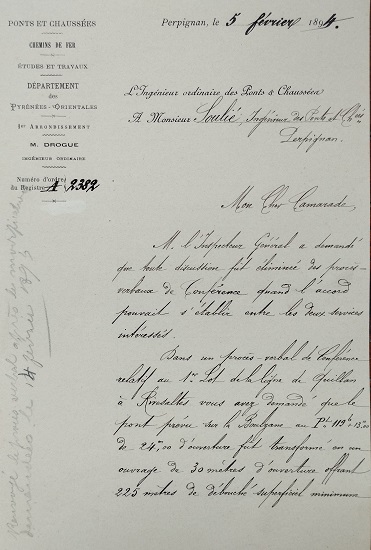 PONTS ET CHAUSSÉES
CHEMINS DE FER
ÉTUDES ET TRAVAUX
DÉPARTEMENT
des
PYRÉNÉES-ORIENTALES
1er ARRONDISSEMENT
M. DROGUE
INGÉNIEUR ORDINAIRE
Numéro d'ordre
du Registre A 2382
Perpignan, le 5 février 1894.
L'Ingénieur ordinaire des Ponts & Chaussées
A Monsieur Soulié, Ingénieur des Ponts et Chées
Perpignan.
Mon Cher Camarade,
M. l'Inspecteur Général a demandé
que toute discussion fût éliminée des procès-
verbaux de Conférence quand l'accord
pouvait s'établir entre les deux services
intéressés.
Dans un procès-verbal de Conférence
relatif au 1er Lot de la ligne de Quillan
à Rivesaltes vous avez demandé que le
pont prévu sur la Boulzane au Pt 112h 13.00
de 24m,00 d'ouverture fût transformé en un
ouvrage de 30 mètres d'ouverture offrant
225 mètres de débouché superficiel minimum